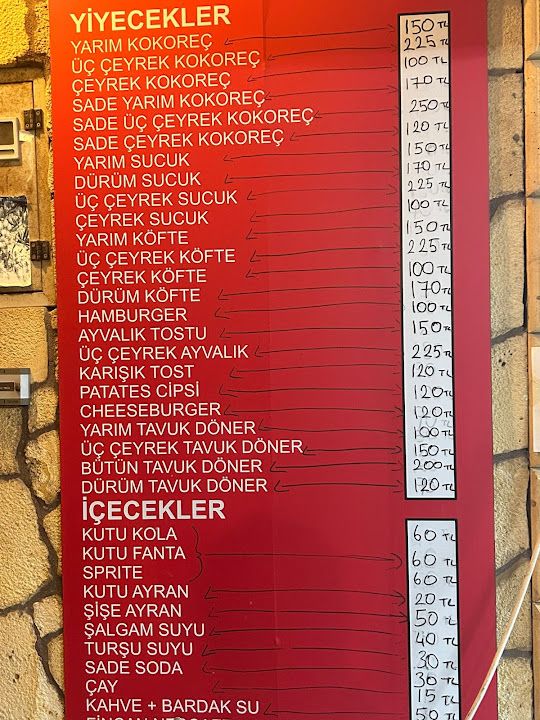 YİYECEKLER
YARIM KOKOREÇ 150 TL
ÜÇ ÇEYREK KOKOREÇ 225 TL
ÇEYREK KOKOREÇ 100 TL
SADE YARIM KOKOREÇ 170 TL
SADE ÜÇ ÇEYREK KOKOREÇ 250 TL
SADE ÇEYREK KOKOREÇ 120 TL
YARIM SUCUK 150 TL
DÜRÜM SUCUK 170 TL
ÜÇ ÇEYREK SUCUK 225 TL
ÇEYREK SUCUK 100 TL
YARIM KÖFTE 150 TL
ÜÇ ÇEYREK KÖFTE 225 TL
ÇEYREK KÖFTE 100 TL
DÜRÜM KÖFTE 170 TL
HAMBURGER 100 TL
AYVALIK TOSTU 150 TL
ÜÇ ÇEYREK AYVALIK 225 TL
KARIŞIK TOST 120 TL
PATATES CİPSİ 120 TL
CHEESEBURGER 120 TL
YARIM TAVUK DÖNER 100 TL
ÜÇ ÇEYREK TAVUK DÖNER 150 TL
BÜTÜN TAVUK DÖNER 200 TL
DÜRÜM TAVUK DÖNER 120 TL
İÇECEKLER
KUTU KOLA 60 TL
KUTU FANTA 60 TL
SPRITE 60 TL
KUTU AYRAN 20 TL
ŞİŞE AYRAN 50 TL
ŞALGAM SUYU 40 TL
TURŞU SUYU 30 TL
SADE SODA 30 TL
ÇAY 15 TL
KAHVE + BARDAK SU 50 TL